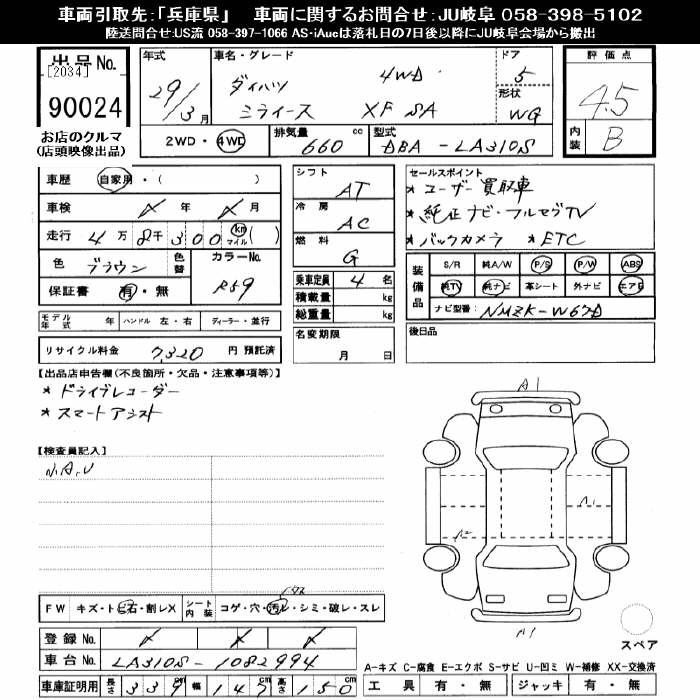 車両引取先:「兵庫県」 車両に関するお問合せ:JU岐阜 058-398-5102
陸送問合せ:US流 058-397-1066 AS-iAucは落札日の7日後以降にJU岐阜会場から搬出
出品No.
[2034]
90024
お店のクルマ
(店頭映像出品)
年式 29/3月
車名・グレード
ダイハツ 4WD
ミライース XF SA
ドア 5
形状 WG
評価点 4.5
内装 B
2WD・4WD
排気量 660 cc
型式 DBA - LA310S
車歴 自家用・( )
車検 年 月
走行 4万 8千 300 km マイル( )
色 ブラウン 色替 カラーNo. R59
保証書 有・無
モデル年式 年 ハンドル 左・右 ディーラー・並行
リサイクル料金 7,320 円 預託済
シフト AT
冷房 AC
燃料 G
乗車定員 4 名
積載量 kg
総重量 kg
名変期限 月 日
セールスポイント
* ユーザー買取車
* 純正ナビ・フルセグTV
* バックカメラ * ETC
装備品
S/R 純A/W P/S P/W ABS
純TV 純ナビ 革シート 外ナビ エアB
ナビ型番: NMZK-W67D
後日品
【出品店申告欄(不良箇所・欠品・注意事項等)】
* ドライブレコーダー
* スマートアシスト
【検査員記入】
N.A.U
A1
A1
A2
A1
スペア
FW キズ・トビ石・割レX シート内装 コゲ・穴・汚レ・シミ・破レ・スレ
登録No.
車台No. LA310S-1082994
車庫証明用 長さ 339cm 幅 147cm 高さ 150cm
A-キズ C-腐食 E-エクボ S-サビ U-凹ミ W-補修 XX-交換済
工具 有・無 ジャッキ 有・無